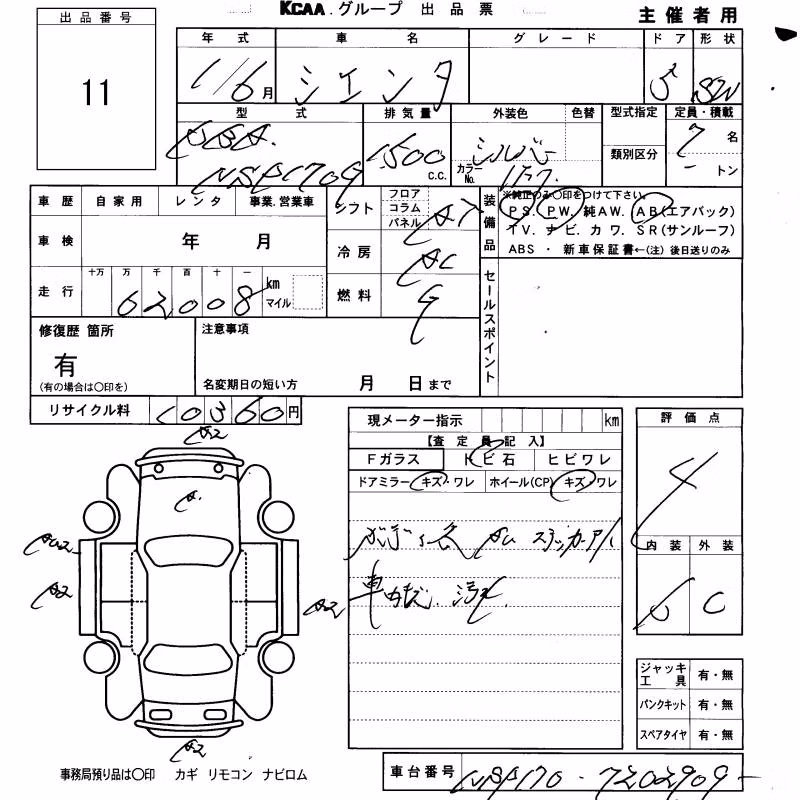 KCAA.グループ 出品票
主催者用
出品番号
11
年式 車名 グレード ドア 形状
1/6月 シエンタ 5 SW
型式 排気量 外装色 色替 型式指定 定員・積載
DBA
NSP170G 1500 c.c. シルバー カラーNo. 1F7 類別区分 7名
- トン
車歴 自家用 レンタ 事業.営業車
シフト フロア コラム パネル AT
装備品 ※純正のみ〇印をつけて下さい
PS. PW. 純AW. AB(エアバック)
TV. ナビ. カワ. SR(サンルーフ)
ABS ・ 新車保証書←(注) 後日送りのみ
車検 年 月
冷房 AC
走行 十万 万 千 百 十 一
62008 km マイル
燃料 G
セールスポイント
修復歴 箇所
有
(有の場合は〇印を)
注意事項
名変期日の短い方 月 日まで
リサイクル料 10360円
現メーター指示 km
【査定員記入】
Fガラス トビ石 ヒビワレ
ドアミラー キズ・ワレ ホイール(CP) キズ・ワレ
ボディー
車内
評価点
4
内装 外装
C
A2
A2
A2
A2
ジャッキ工具 有・無
パンクキット 有・無
スペアタイヤ 有・無
事務局預り品は〇印 カギ リモコン ナビロム
車台番号 NSP170-7202909-